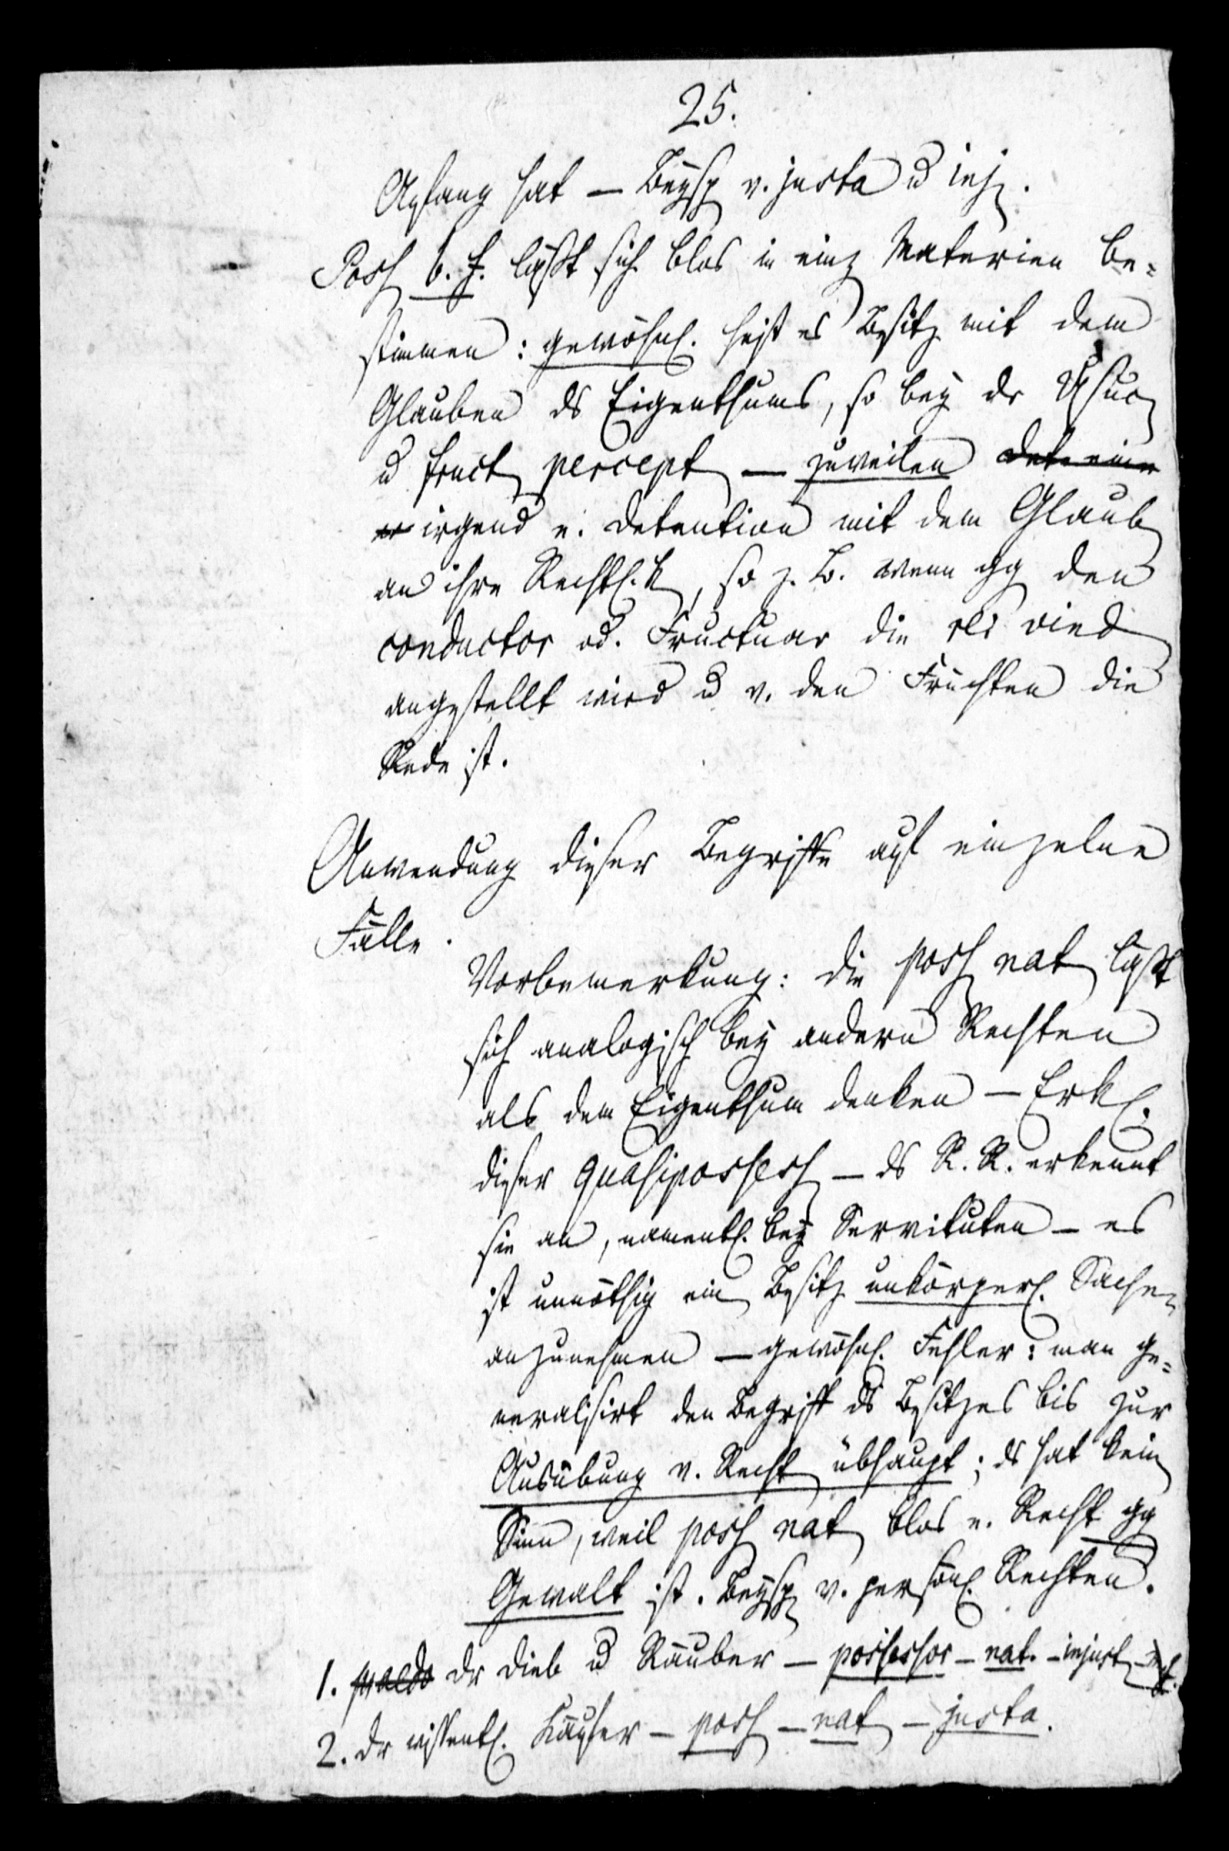 25.
Anfang hat – Beysp v. justa u inj.
Poss b. f. läßt sich blos in einz Materien be-
stimmen: gewöhnl. heist es Besitz mit dem
Glauben ds Eigenthums, so bey dr Usuc
u fruct percept – zuweilen
irgend e. Detention mit dem Glaub
an ihre Rechtl.k, so z. B. wenn gg den
conductor od. Fructuar die rei vind
angestellt wird u v. den Früchten die
Rede ist.
Anwendung dieser Begriffe auf einzelne
Fälle.
Vorbemerkung: die poss nat läßt
sich analogisch bey andern Rechten
als dem Eigenthum denken – Erkl.
dieser quasipossess – ds R. R. erkennt
sie an, namentl. bey Servituten – es
ist unnöthig ein Besitz unkörperl. Sachen
anzunehmen – gewöhnl. Fehler: man ge-
neralisirt den Begriff ds Besitzes bis zur
Ausübung v. Recht übhaupt; ds hat kein
Sinn, weil poss nat blos e. Recht gg
Gewalt ist. Beysp v. persönl. Rechten.
1. dr Dieb u Räuber – possessor – nat. – injust
2. dr wissentl. Käufer – poss – nat – justa.